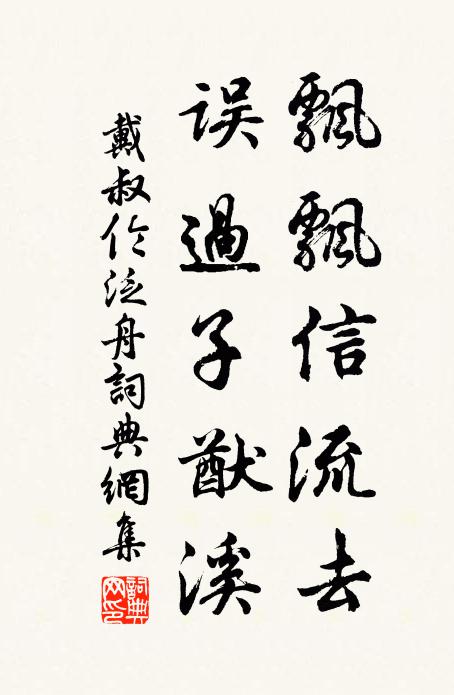 飄飄信流去
误過子猷溪
戴叔伦泛舟詞典網集
詞典网印